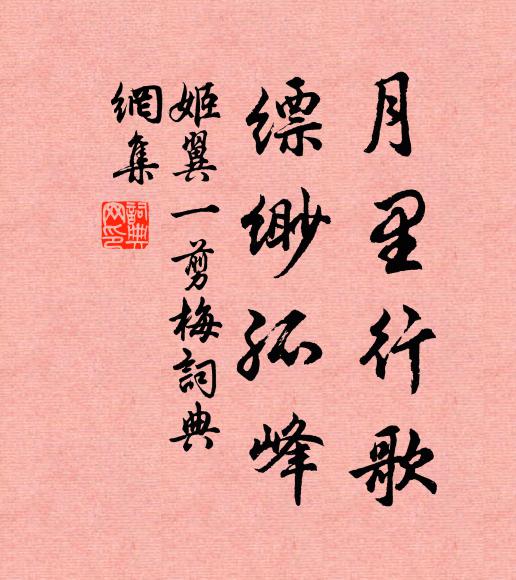 月里行歌
缥缈孤峰
姬翼一剪梅詞典
網集
詞典
网印